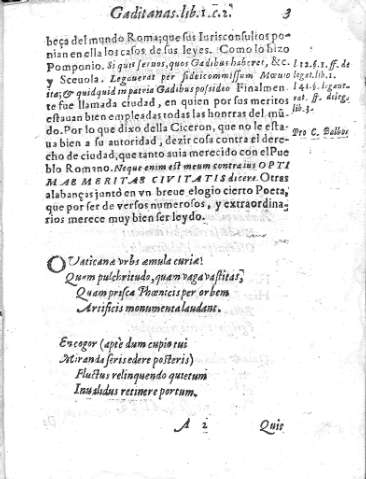 Gaditanas. lib. 1. c. 2. 3
beça del mundo Roma; que sus Iurisconsultos po-
nian en ella los casos de sus leyes. Como lo hizo
Pomponio. Si quis seruos, quos Gadibus haberet, &c.
y Sceuola. Legauerat per fideicommissum Mœuio
ita; & quidquid in patria Gadibus possideo Finalmen-
te fue llamada ciudad, en quien por sus meritos
estauan bien empleadas todas las honrras del mũ-
do. Por lo que dixo della Ciceron, que no le esta-
ua bien a su autoridad, dezir cosa contra el dere-
cho de ciudad, que tanto auia merecido con el Pue
blo Romano. Neque enim est meum contra ius OPTI
MAE MERITAE CIVITATIS dicere. Otras
alabanças juntò en vn breue elogio cierto Poeta,
que por ser de versos numerosos, y extraordina-
rios merece muy bien ser leydo.
ff. de
legat. lib. 1.
lib. 3.
Pro C. Balbo.
O Vaticanæ vrbs æmula curiæ!
Quam pulchritudo, quam vaga vastitas,
Quam prisca Phœnicis per orbem
Artificis monumenta laudant.
Encogor (aptè dum cupio tui
Miranda seris edere posteris)
Fluctus relinquendo quietum
Inualidus retinere portum.
A 2 Quis